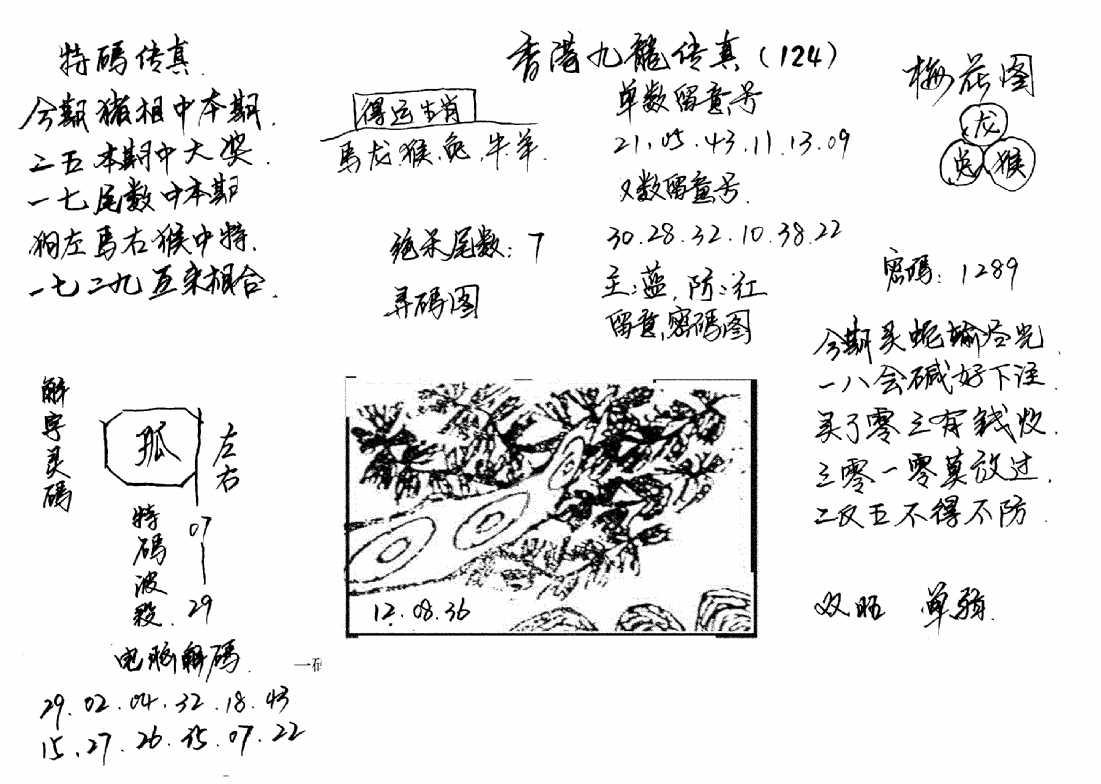 香港九龍传真(124)
特碼传真
今期猪相中本期.
二五本期中大奖.
一七尾数中本期
狗左馬右猴中特.
一七二九五来相合.
得运生肖
馬龙猴.兔.牛.羊.
绝杀尾数:7
寻码图
单数留意号
21.05.43.11.13.09
双数留意号.
30.28.32.10.38.22
主:蓝.防:红
留意.密码图
梅花图
龙
兔 猴
密碼:1289
今期买蛇输
一八会碱好下注.
买了零三有钱收.
三零一零莫放过.
二又五不得不防.
双 单
解字灵碼
孤
左右
特碼波段.
07—29
12.08.36
电脑解碼.
一码
29.02.04.32.18.43
15.27.26.35.07.22